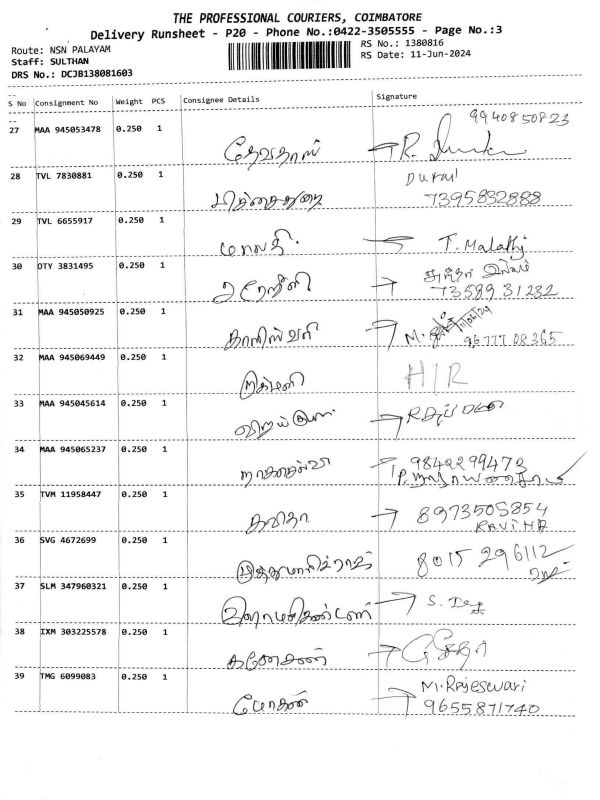 THE PROFESSIONAL COURIERS, COIMBATORE
Delivery Runsheet - P20 - Phone No.:0422-3505555 - Page No.:3
Route: NSN PALAYAM
RS No.: 1380816
Staff: SULTHAN
RS Date: 11-Jun-2024
DRS No.: DCJB138081603
S No Consignment No Weight PCS Consignee Details Signature
9940850823
27 MAA 945053478 0.250 1
தேவதாஸ் R.
28 TVL 7830881 0.250 1 Durai
பிச்சைதுரை 7395832888
29 TVL 6655917 0.250 1
மாலதி. T. Malathy
30 OTY 3831495 0.250 1
73589 31232
31 MAA 945050925 0.250 1
காளிஸ்வரி M. 11/06/24
96777 08365
32 MAA 945069449 0.250 1
ருக்மணி H/R
33 MAA 945045614 0.250 1
34 MAA 945065237 0.250 1
9842299473
35 TVM 11958447 0.250 1
கவிதா 8973505854
KAVITHA
36 SVG 4672699 0.250 1
முத்துமாரிராஜ் 8015 296112
37 SLM 347960321 0.250 1
S.
38 IXM 303225578 0.250 1
கணேசன்
39 TMG 6099083 0.250 1
M. Rajeswari
மோகன் 9655871740